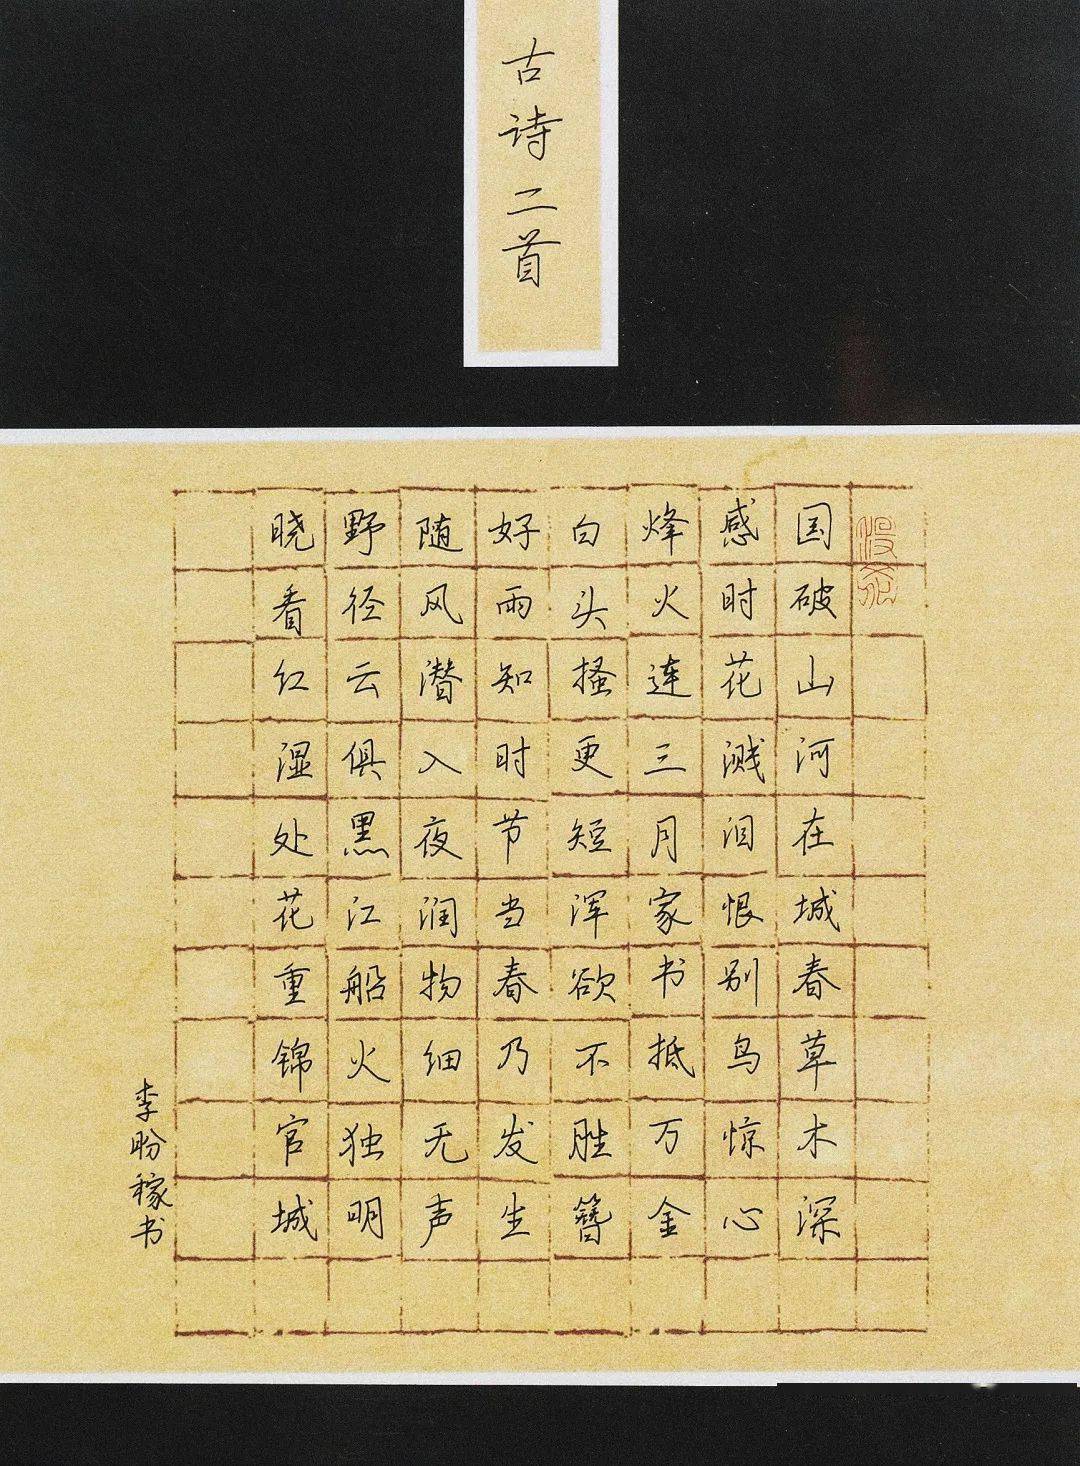 古诗二首
国破山河在城春草木深
感时花溅泪恨别鸟惊心
烽火连三月家书抵万金
白头搔更短浑欲不胜簪
好雨知时节当春乃发生
随风潜入夜润物细无声
野径云俱黑江船火独明
晓看红湿处花重锦官城
李盼稼书